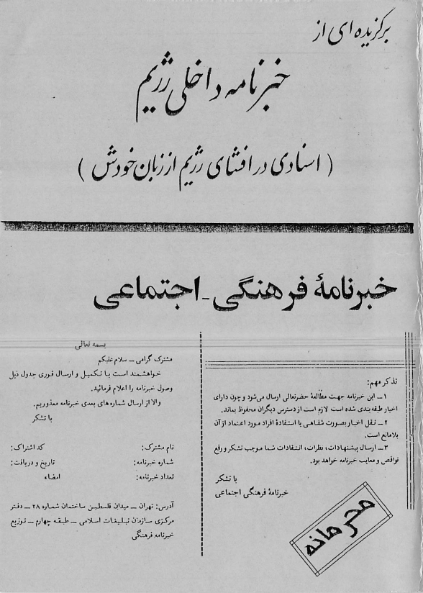 برگزیده ای از
خبرنامه داخلی رژیم
( اسنادی در افشای رژیم از زبان خودش )
خبرنامهٔ فرهنگی - اجتماعی
تذکر مهم:
۱ــ این خبرنامه جهت مطالعهٔ حضرتعالی ارسال می‌شود و چون دارای
اخبار طبقه‌بندی شده است لازم است از دسترس دیگران محفوظ بماند.
۲ــ نقل اخبار بصورت شفاهی با استفادهٔ افراد مورد اعتماد از آن
بلامانع است.
۳ــ ارسال پیشنهادات، نظرات، انتقادات شما موجب تشکر و رفع
نواقص و معایب خبرنامه خواهد بود.
با تشکر
خبرنامهٔ فرهنگی اجتماعی
محرمانه
بسمه تعالی
مشترک گرامی ــ سلام علیکم
خواهشمند است با تکمیل و ارسال فوری جدول ذیل
وصول خبرنامه را اعلام فرمائید.
والا از ارسال شماره‌های بعدی خبرنامه معذوریم.
با تشکر
نام مشترک: کد اشتراک:
شماره خبرنامه: تاریخ و دریافت:
تعداد خبرنامه: امضاء
آدرس: تهران ــ میدان فلسطین ساختمان شماره ۲۸ ــ دفتر
مرکزی سازمان تبلیغات اسلامی ــ طبقه چهارم ــ توزیع
خبرنامه فرهنگی